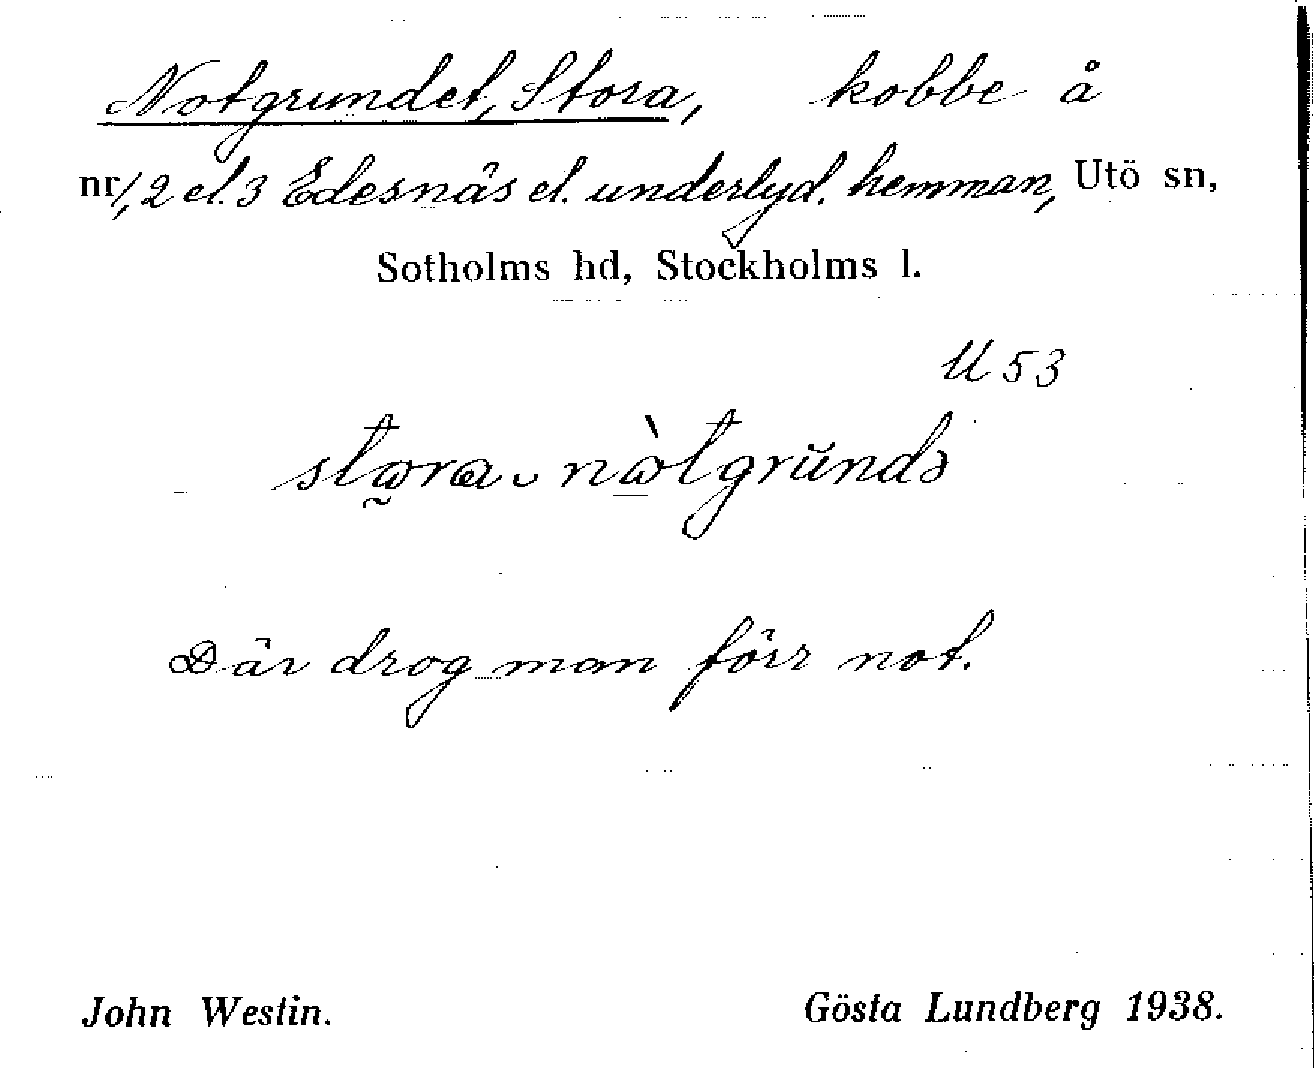 Notgrundet, Stora, kobbe å
nr 1, 2 el. 3 Edesnäs el. underlyd. hemman, Utö sn,
Sotholms hd, Stockholms l.
U 53
stɷra ᴗ nɷ̀tgrŭndə
Där drog man förr not.
John Westin. Gösta Lundberg 1938.